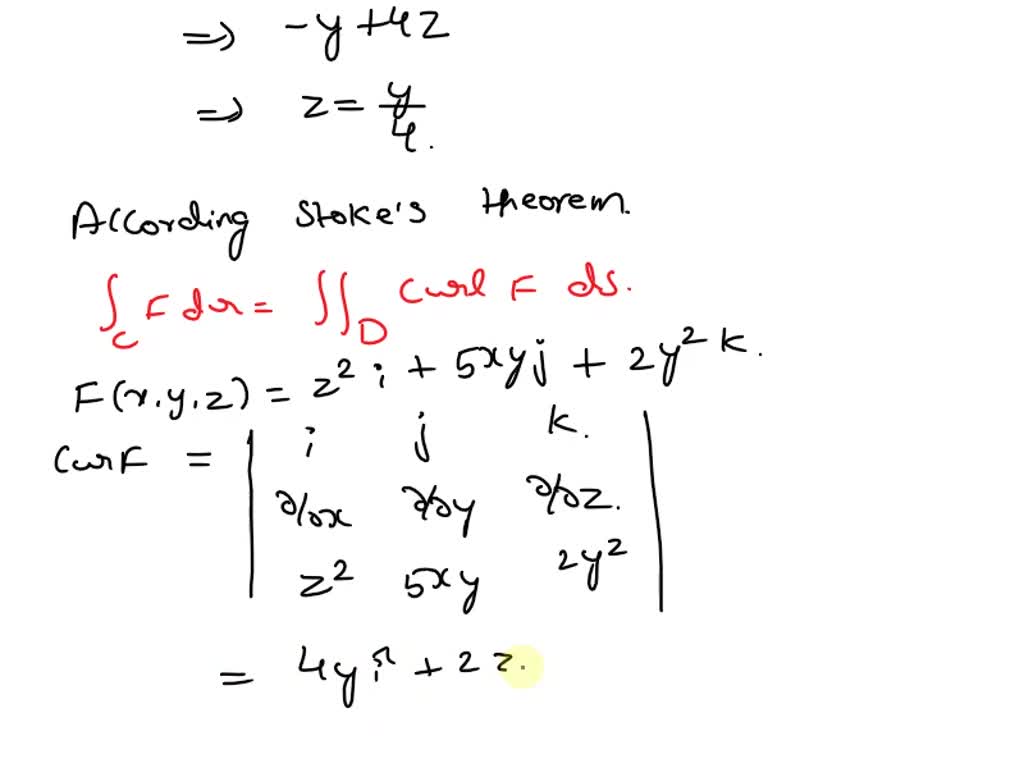 => -y+4z
=> z = y/4.
According Stoke's theorem.
∫_C F dr = ∬_D Curl F ds.
F(x,y,z) = z² i + 5xyj + 2y² k.
Curl F = | i j k. |
| ∂/∂x ∂/∂y ∂/∂z. |
| z² 5xy 2y² |
= 4y î + 2z.